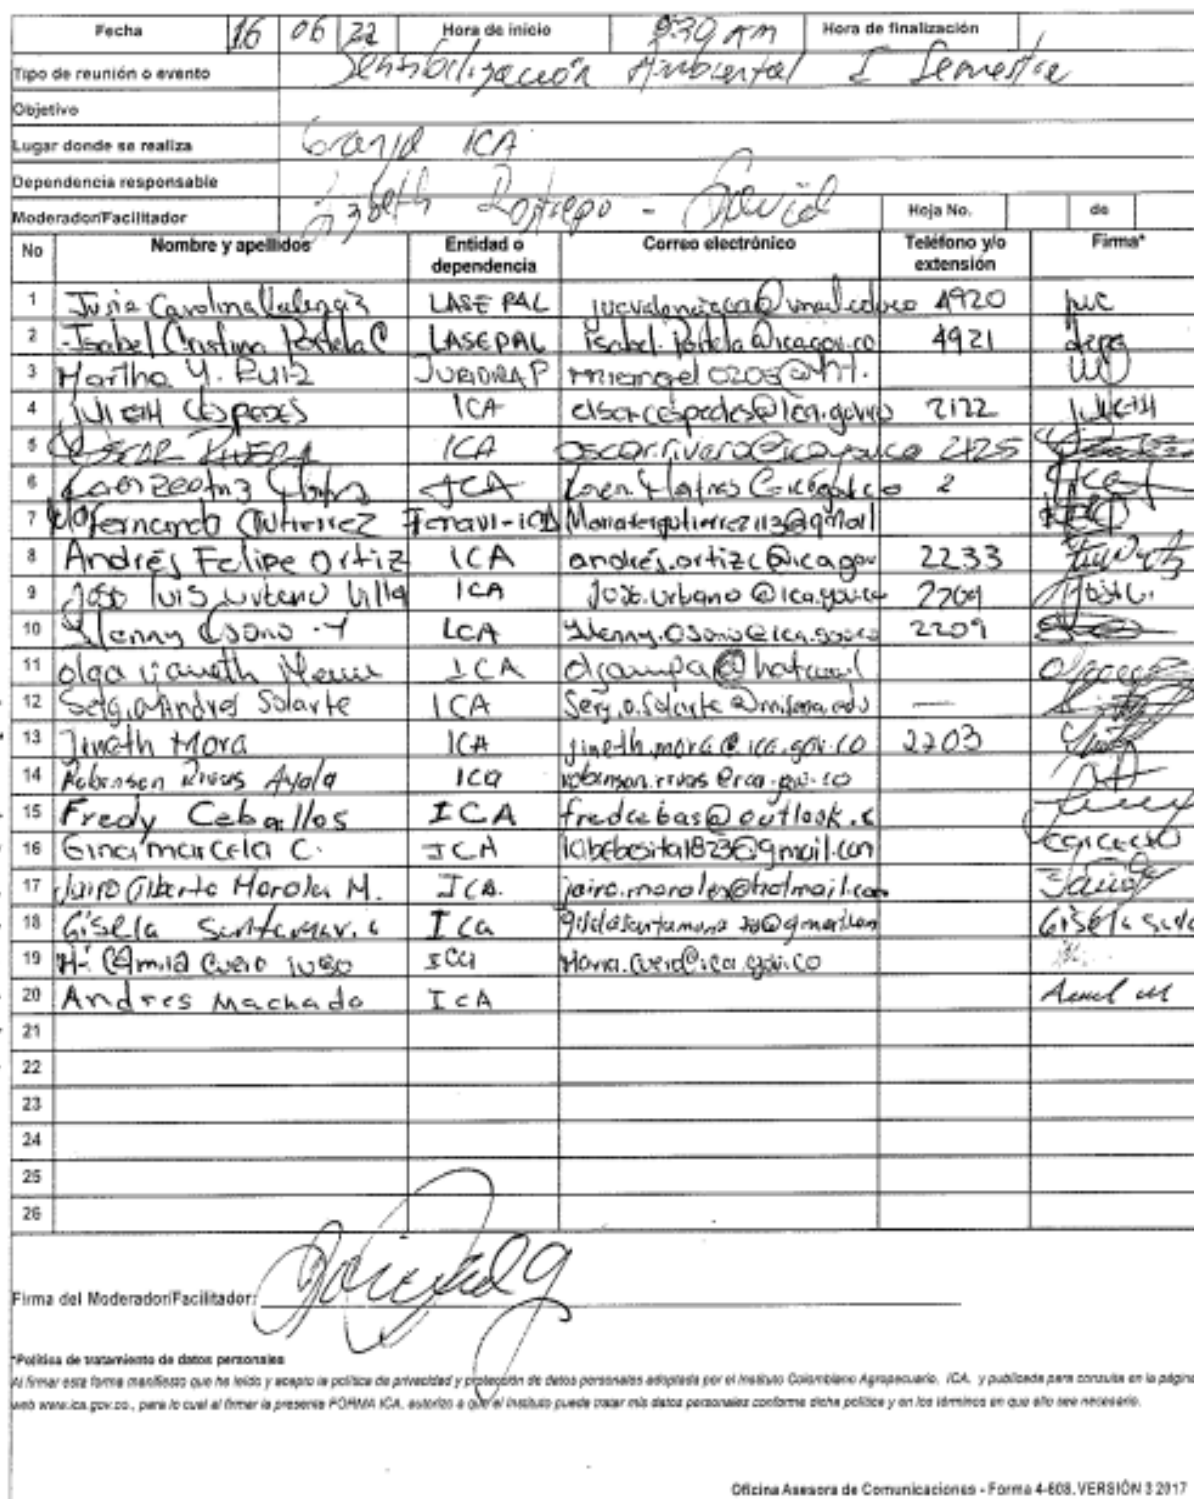 Fecha 16 06 22 Hora de inicio 9:30 AM Hora de finalización
Tipo de reunión o evento Sensibilización Ambiental I Semestre
Objetivo
Lugar donde se realiza Granja ICA
Dependencia responsable
Moderador/Facilitador Lizbeth Restrepo - David Hoja No. de
No Nombre y apellidos Entidad o dependencia Correo electrónico Teléfono y/o extensión Firma*
1 Carolina Valencia LASEPAL 4920
2 Isabel Cristina Portela C LASEPAL isabel.portela@ica.gov.co 4921
3 Martha Y. Ruiz
4 Julieth Cespedes ICA 2122
5 OSCAR RIVERA ICA 2125
6 ICA 2
7 Fernanda Gutierrez Fenavi-ICA Mariafergutierrez113@gmail
8 Andrés Felipe Ortiz ICA andrés.ortizc@ica.gov 2233
9 Jose Luis Villa ICA Jose.urbano@ica.gov.co 2209
10 ICA 2209
11 olga ICA
12 Sergio Andres Solarte ICA —
13 Jineth Mora ICA jineth.mora@ica.gov.co 2203
14 Robinson Rivas Ayala ICA robinson.rivas@ica.gov.co
15 Fredy Ceballos ICA fredcebas@outlook.c
16 Gina marcela C. ICA labebesita1823@gmail.com
17 Jairo Alberto Morales M. ICA. jairo.morales@hotmail.com
18 Gisela Santamaria ICA Gisela
19 Camila Cuero ICA Maria.Cuero@ica.gov.co
20 Andres Machado ICA
21
22
23
24
25
26
Firma del Moderador/Facilitador:
*Política de tratamiento de datos personales
Al firmar esta forma manifiesto que he leído y acepto la política de privacidad y protección de datos personales adoptada por el Instituto Colombiano Agropecuario, ICA, y publicada para consulta en la página
web www.ica.gov.co., para lo cual al firmar la presente FORMA ICA, autorizo a que el Instituto pueda tratar mis datos personales conforme dicha política y en los términos en que ello sea necesario.
Oficina Asesora de Comunicaciones - Forma 4-608. VERSIÓN 3 2017